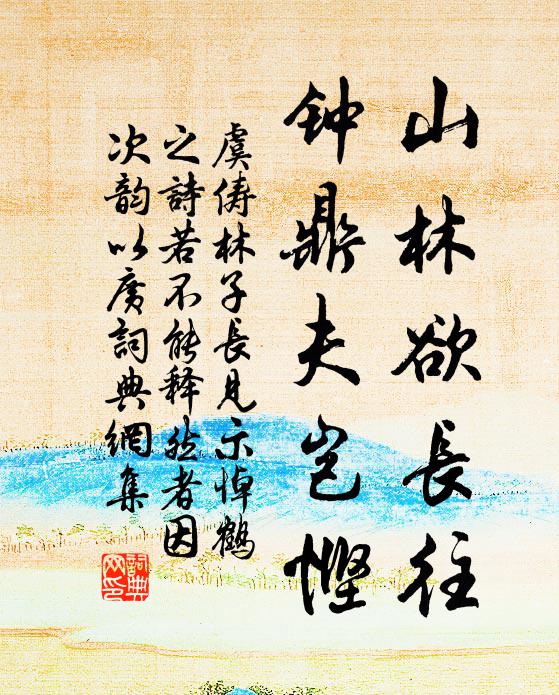 山林欲長往
钟鼎夫岂慳
虞俦林子長見示悼鶴
之詩若不能释然者因
次韵以廣詞典網集
詞典
网印